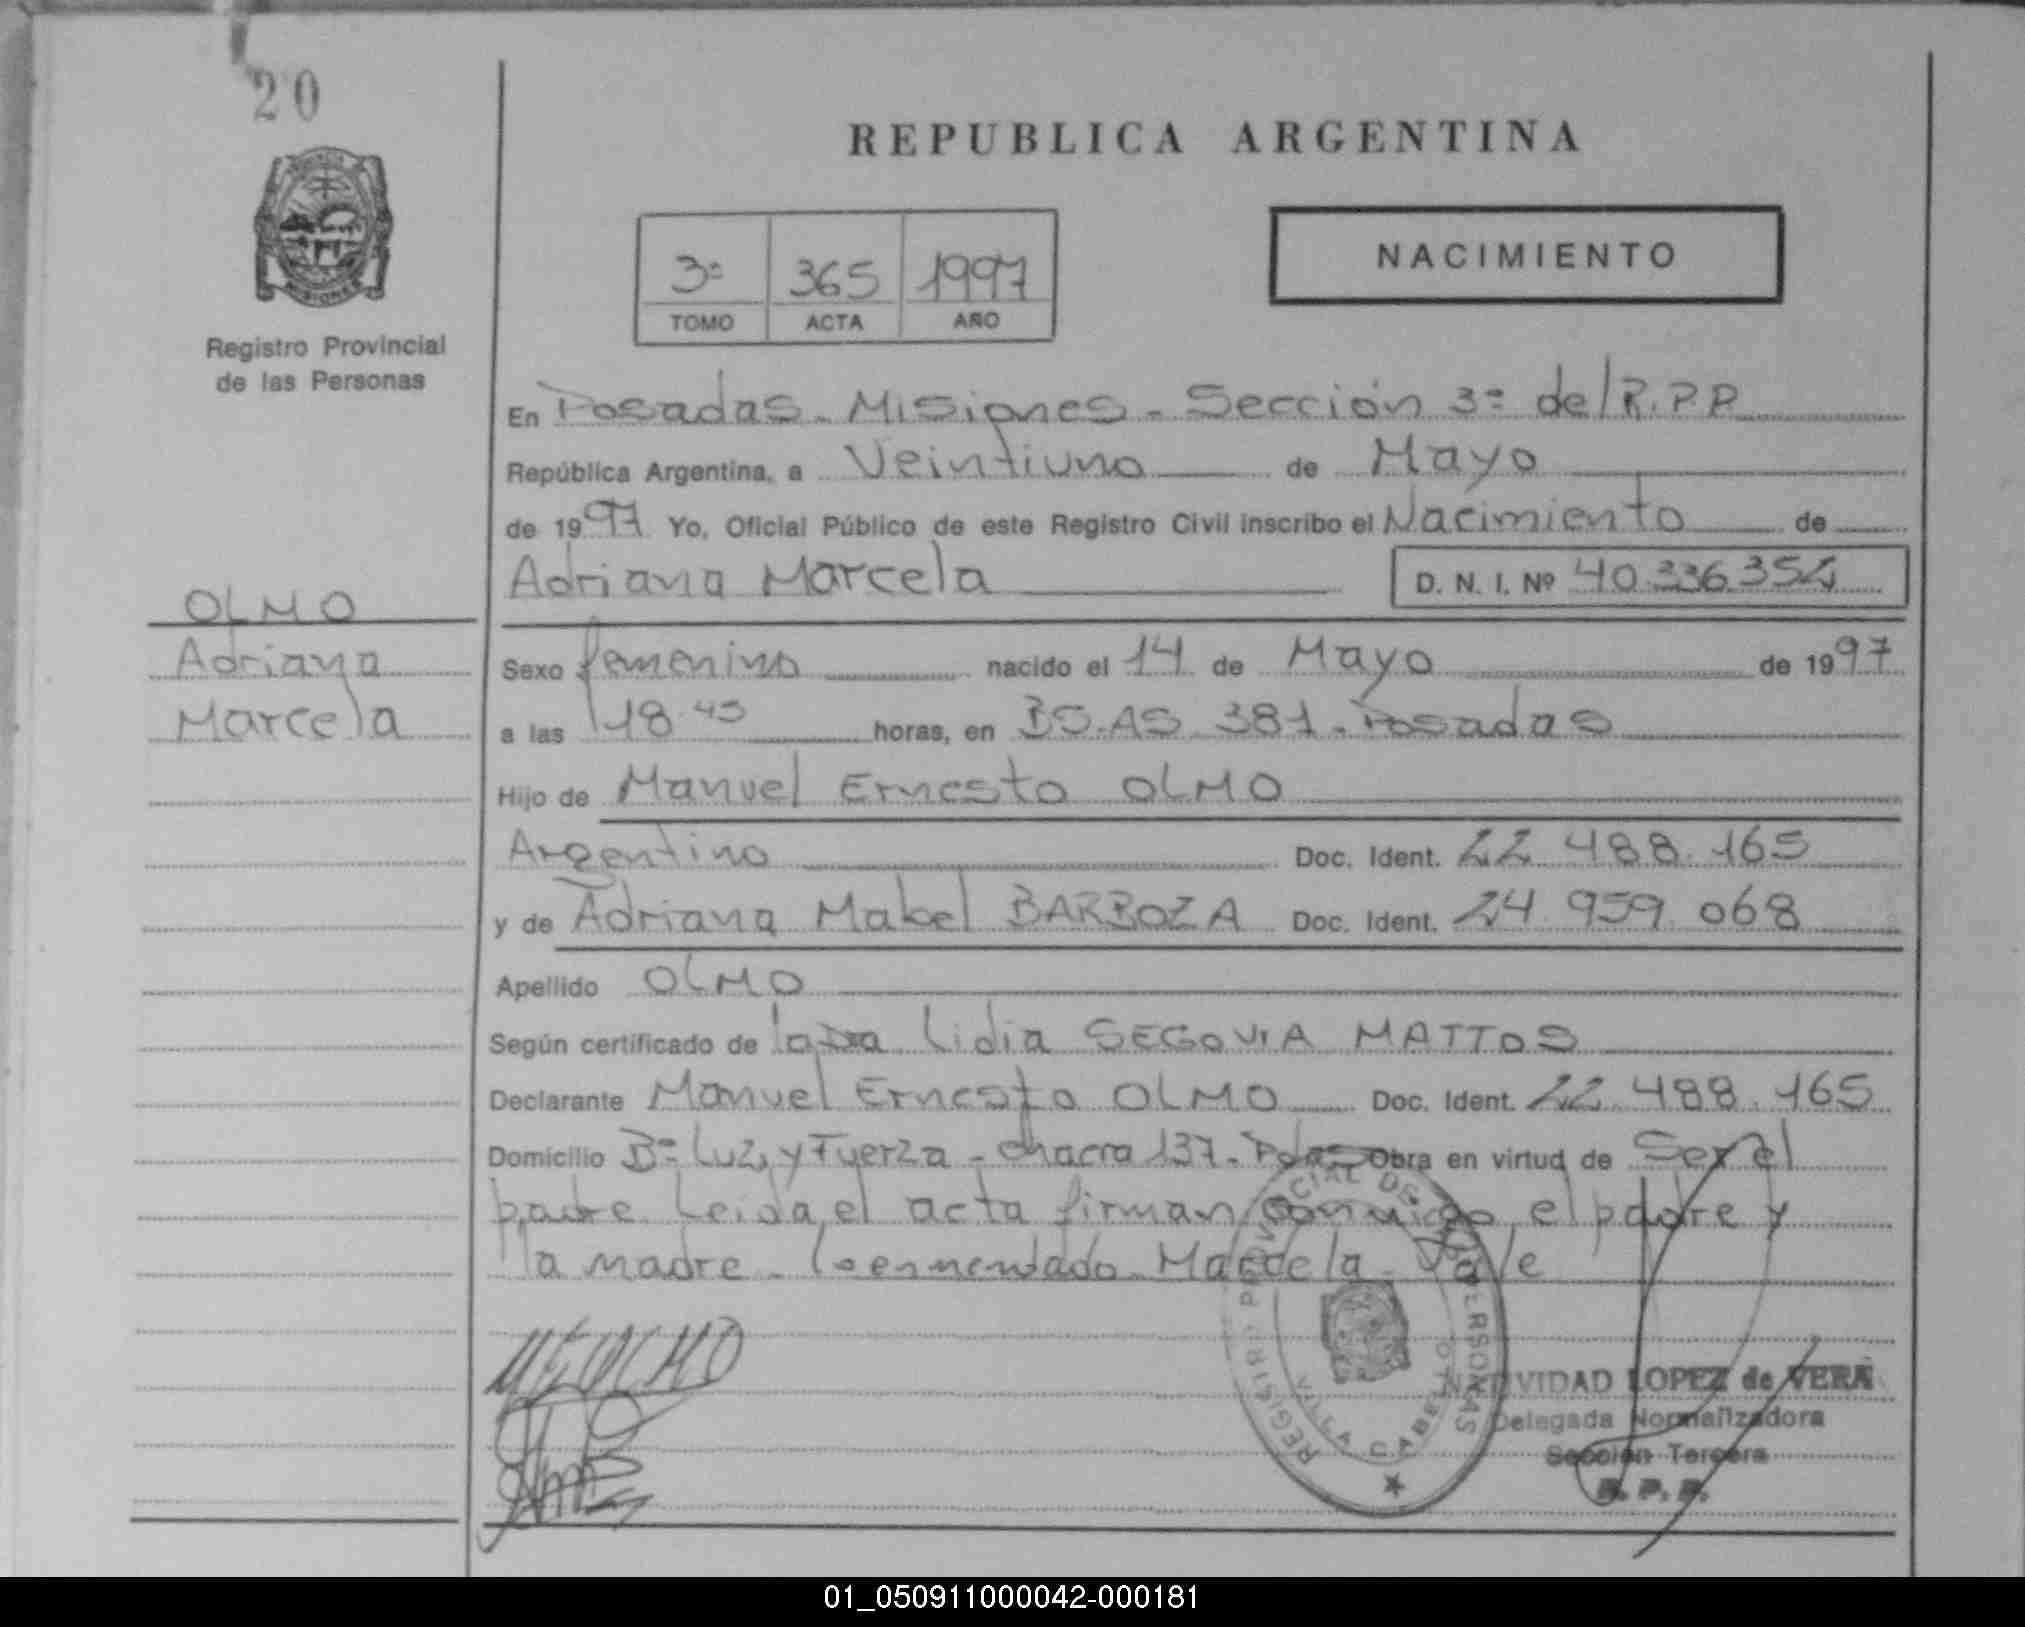 20
REPUBLICA ARGENTINA
NACIMIENTO
3ª 365 1997
TOMO ACTA AÑO
MISIONES
Registro Provincial
de las Personas
En Posadas - Misiones - Sección 3ª del R.P.P.
República Argentina, a Veintiuno de Mayo
de 1997 Yo, Oficial Público de este Registro Civil inscribo el Nacimiento de
Adriana Marcela D. N. I. Nº 40.336.354
OLMO
Adriana
Marcela
Sexo femenino nacido el 14 de Mayo de 1997
a las 18.45 horas, en BS.AS. 381 - Posadas
Hijo de Manuel Ernesto OLMO
Argentino Doc. Ident. 22.488.165
y de Adriana Mabel BARBOZA Doc. Ident. 24.959.068
Apellido OLMO
Según certificado de la Dra Lidia SEGOVIA MATTOS
Declarante Manuel Ernesto OLMO Doc. Ident. 22.488.165
Domicilio Bº Luz y Fuerza - chacra 137 - Pdas Obra en virtud de Ser el
padre Leida el acta firman conmigo el padre y
la madre - Lo enmendado Marcela - Vale
M E OLMO
REGISTRO PROVINCIAL DE LAS PERSONAS
VILLA CABELLO
NATIVIDAD LOPEZ de VERA
Delegada Normalizadora
Sección Tercera
R. P. P.
01_050911000042-000181